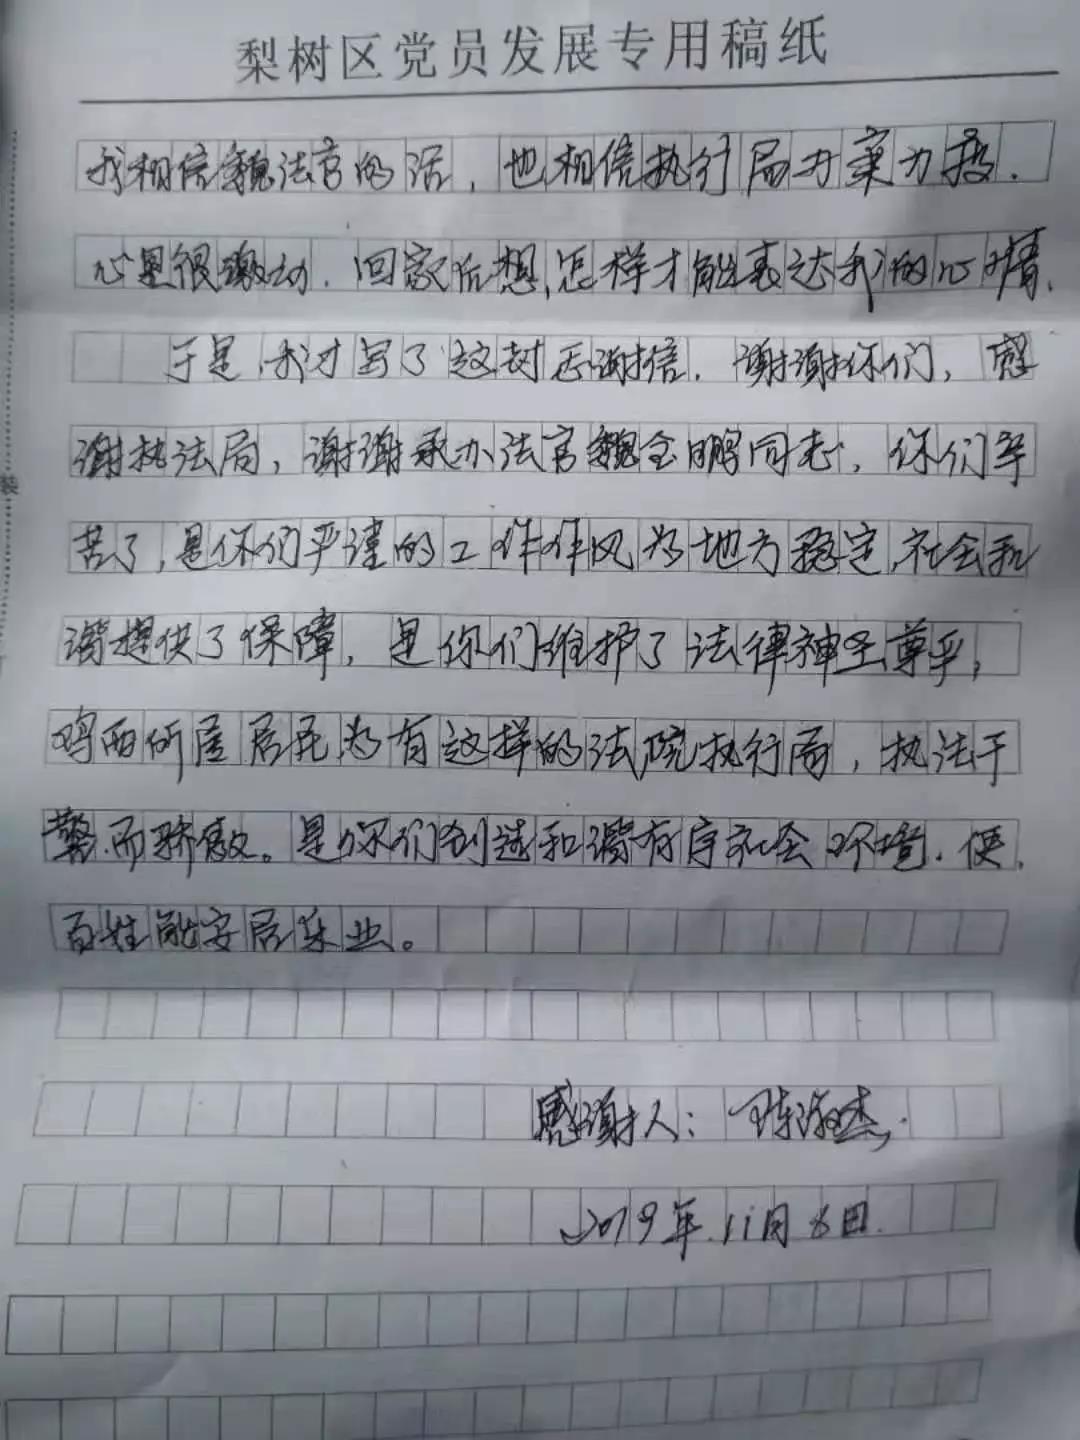 梨树区党员发展专用稿纸
我相信魏法官的话，也相信执行局办案力度.
心里很激动.回家后想,怎样才能表达我的心情.
于是,我才写了这封感谢信.谢谢你们，感
谢执法局，谢谢承办法官魏全鹏同志，你们辛
苦了,是你们严谨的工作作风为地方稳定,社会和
谐提供了保障，是你们维护了法律神圣尊严，
鸡西所属居民为有这样的法院执行局，执法干
警.而骄傲。是你们创造和谐有序社会环境.使.
百姓能安居乐业。
装
感谢人：陈淑杰.
2019年.11月8日.